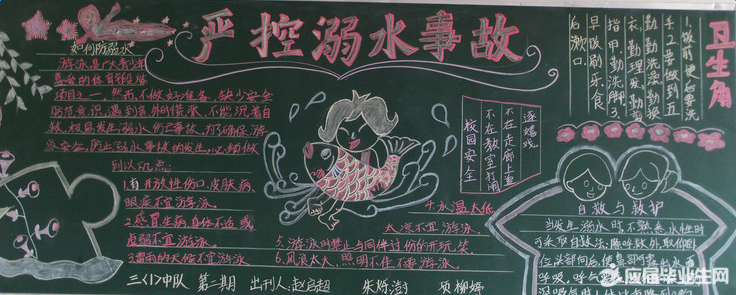 严控溺水事故
如何防溺水
游泳是广大青少年
喜爱的体育锻炼
项目之一。然而,不做好准备、缺少安全
防范意识,遇到意外时慌张、不能沉着自
救,极易发生溺水伤亡事故。为了确保游
泳安全,防止溺水事故的发生,必须做
到以下几点:
1.有开放性伤口、皮肤病、
眼疾不宜游泳。
2.感冒生病、身体不适或
虚弱不宜游泳。
3.雷雨的天气不宜游泳
4.水温太低
太凉不宜游泳。
5.游泳时禁止与同伴过份的开玩笑
6.风浪太大、照明不佳不要游泳。
三<1>中队 第二期 出刊人:赵启超 朱烁澍 项柳婷
校园安全
不在教室打闹
不在走廊上追
逐嬉戏。
卫生角
1.饭前便后要洗
手2.要做到五
勤:勤洗澡勤换
衣,勤理发,勤剪
指甲,勤洗脚3.
早晚刷牙,食
后漱口
自救与救护
当发生溺水时,不熟悉水性时
可采取自救法:除呼救外,取仰卧
位,头部向后,使鼻部可露出水面
呼吸。
应届毕业生网